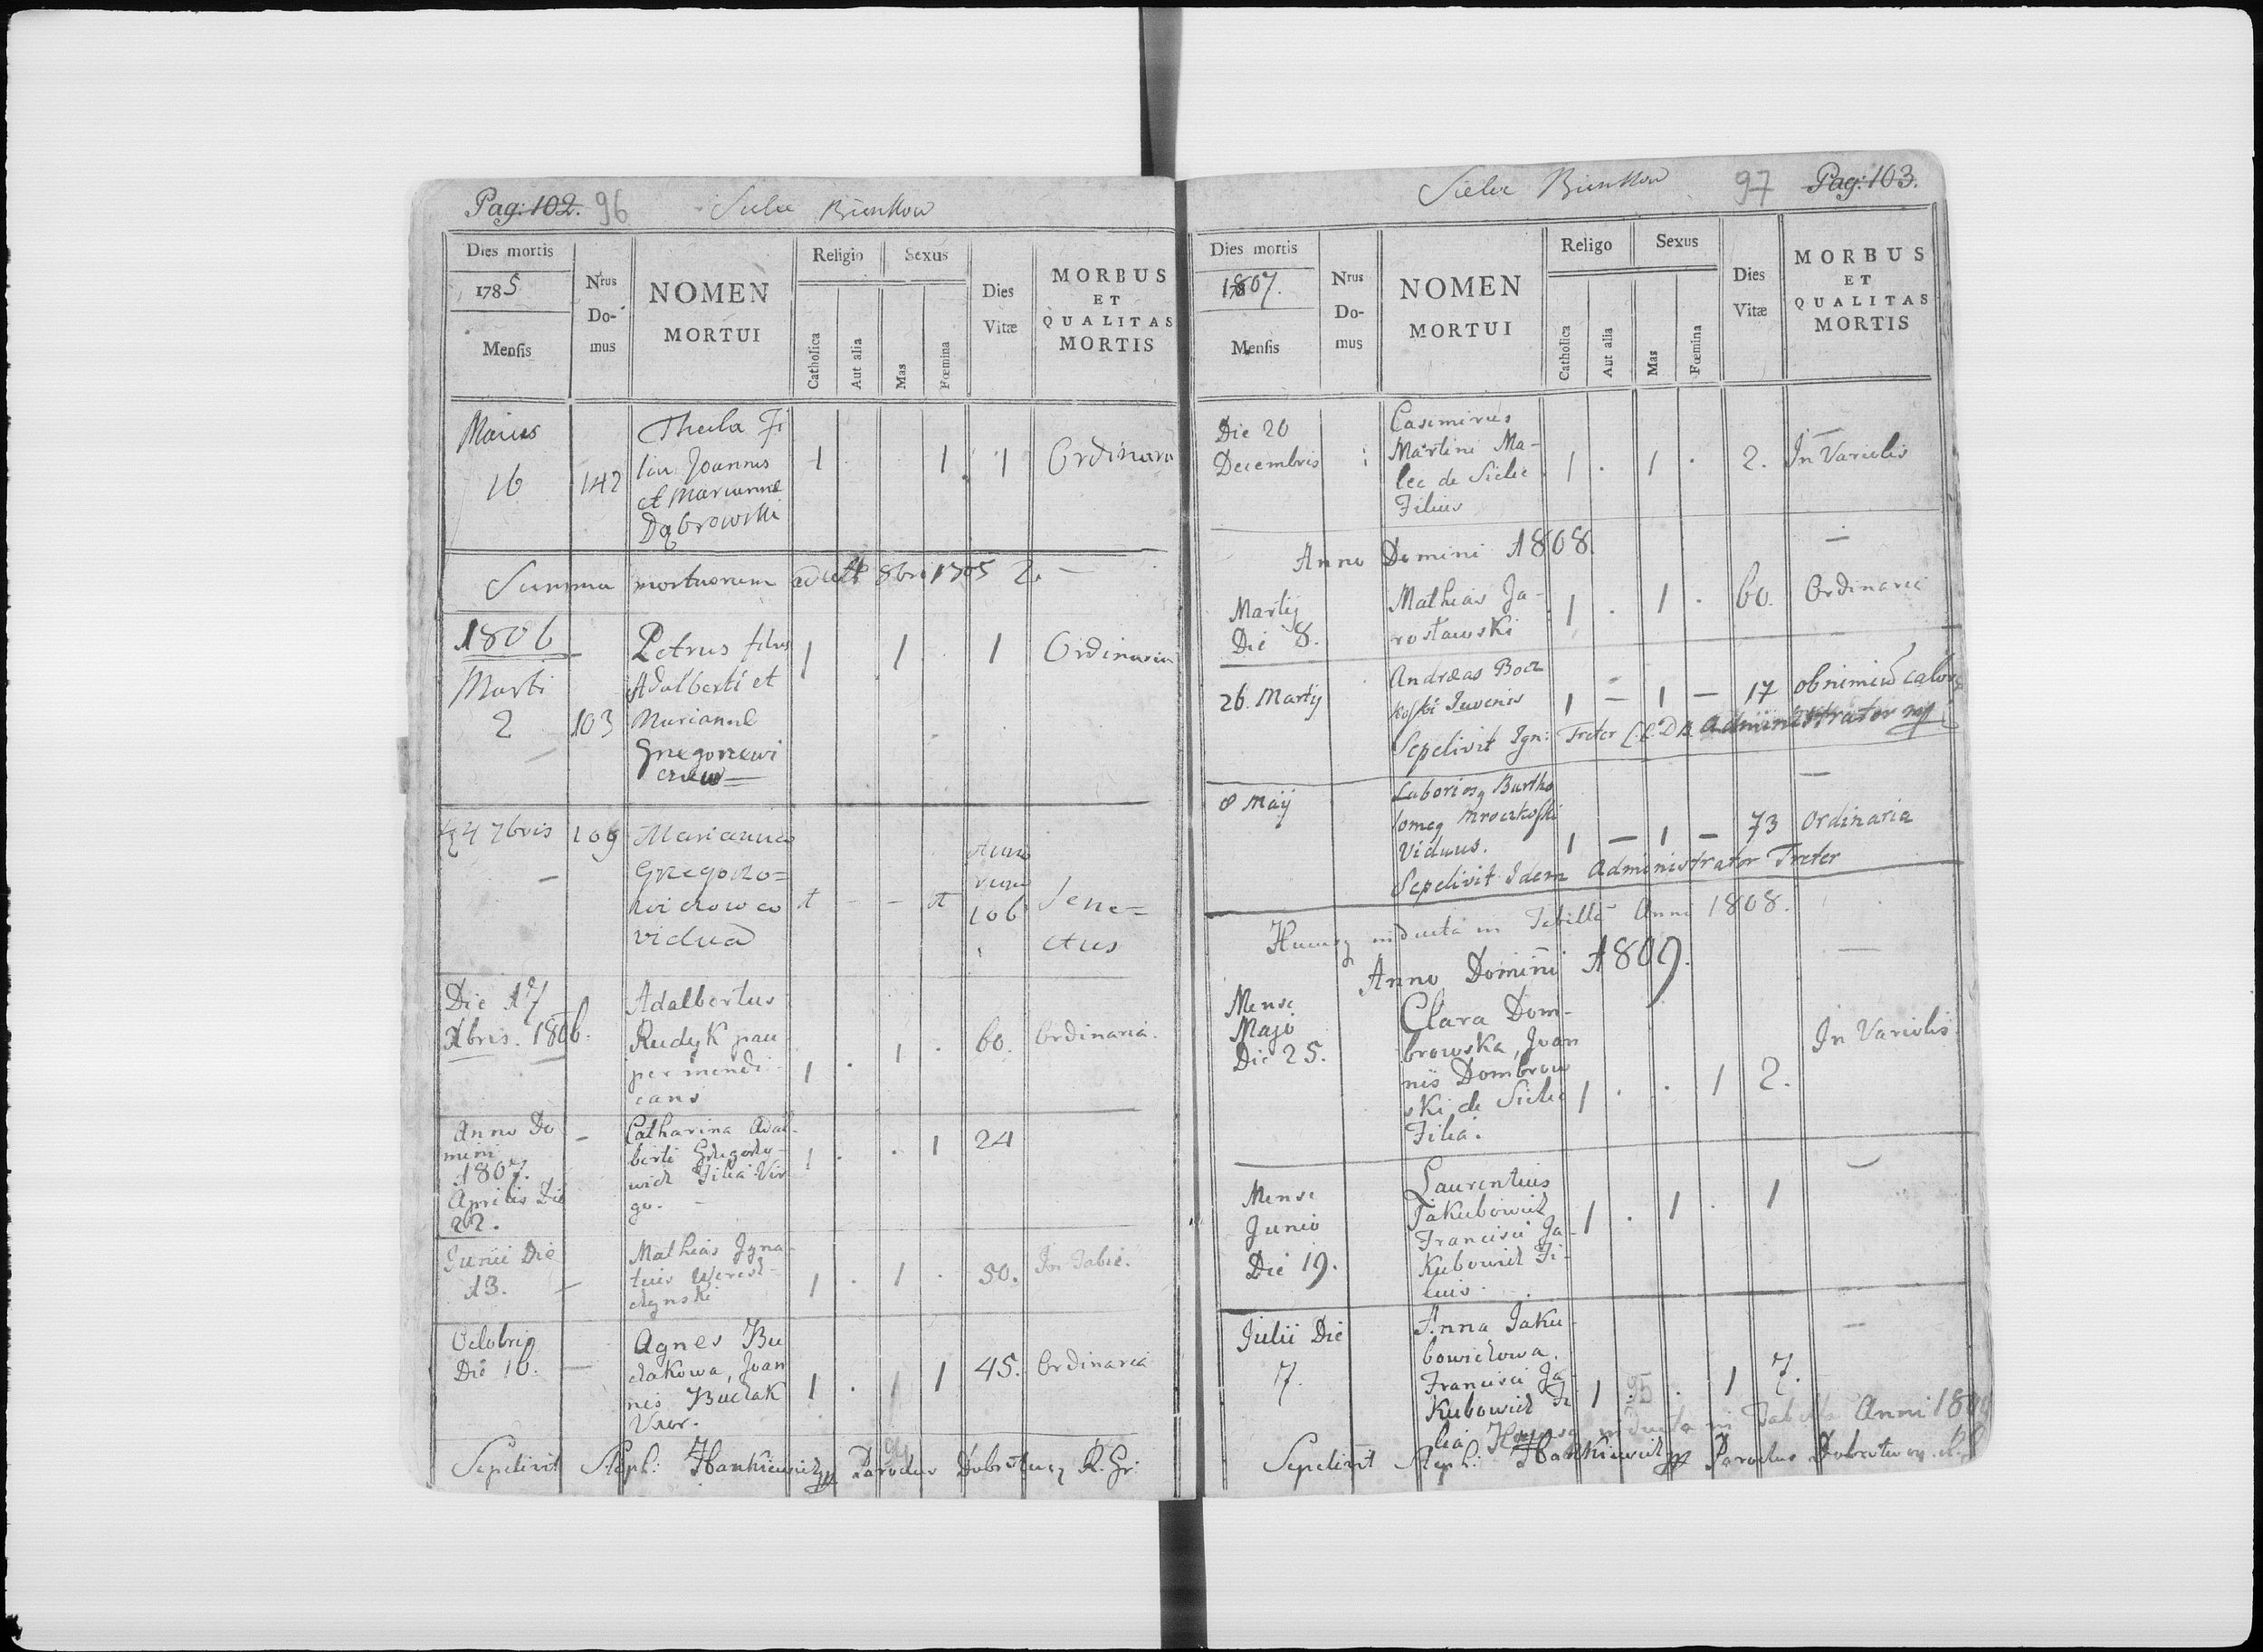 Pag: 102. 96 Sielec Bienkow
Dies mortis
1785
Mensis
Nrus
Do-
mus
NOMEN
MORTUI
Religio
Catholica
Aut alia
Sexus
Mas
Fœmina
Dies
Vitæ
MORBUS
ET
QUALITAS
MORTIS
Maius
16
142
Thecla Fi
lia Joannis
et Marianne
Dąbrowski
1 1 1 Ordinaria
Summa mortuorum 2.
1806
Marti
2
103
Petrus filius
Adalberti et
Marianne
Gregorzewi
1 1 1 Ordinaria
24 7bris 109
Marianna
Grzegorzo=
wiczowa
vidua
1 - - 1
106
Sene=
ctus
Die 17
Xbris. 1806.
Adalbertus
Rudyk pau
per mendi
cans
1 . 1 . 60. Ordinaria.
Anno Do
mini
1807.
Aprilis Die
22.
Catharina Adal-
berti Grzegorzo-
wicz Filia Vir-
go.
1 . . 1 24
Junii Die
13.
Mathias Igna-
tius Weresz-
czynski
1 . 1 . 50. In Tabie.
Octobris
Die 10.
Agnes Bu
czakowa, Joan
nis Buczak
Uxor.
1 . 1 45. Ordinaria
Sepelivit Steph: Hankiewicz Parochus Dobrotus R. Gr:
Sielec Bienkow 97 Pag: 103.
Dies mortis
1807.
Mensis
Nrus
Do-
mus
NOMEN
MORTUI
Religo
Catholica
Aut alia
Sexus
Mas
Fœmina
Dies
Vitæ
MORBUS
ET
QUALITAS
MORTIS
Die 20
Decembris
Casimirus
Martini Ma-
lec de Sielec
Filius
1 . 1 . 2. In Variolis
Anno Domini 1808.
Martij
Die 8.
Mathias Ja-
rosławski
1 . 1 . 60. Ordinaria
26. Martij
Andreas Bocz
koski Juvenis
1 - 1 - 17
Sepelivit Ign: Treter Administrator
8 Maij
Laborios Bartho
lomeq Mroczkoski
Viduus.
1 - 1 - 73 Ordinaria
Sepelivit Idem Administrator Treter
Hucusq inducta in Tabella Anni 1808.
Anno Domini 1809.
Mense
Majo
Die 25.
Clara Dom-
browska, Joan
nis Dombrow
ski de Sielec
Filia.
1 . . 1 2.
In Variolis
Mense
Junio
Die 19.
Laurentius
Jakubowicz
Francisci Ja-
kubowicz Fi-
lius.
1 . 1 . 1
Julii Die
7.
Anna Jaku-
bowiczowa.
Francisci Ja-
kubowicz Fi
lia
1 . 1 7.
Hucusq inducta in Tabella Anni 1809
Sepelivit Steph: Hankiewicz Parochus